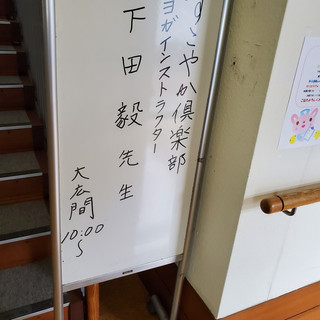 すこやか倶楽部
ヨガインストラクター
下田毅先生
大広間
10:00〜